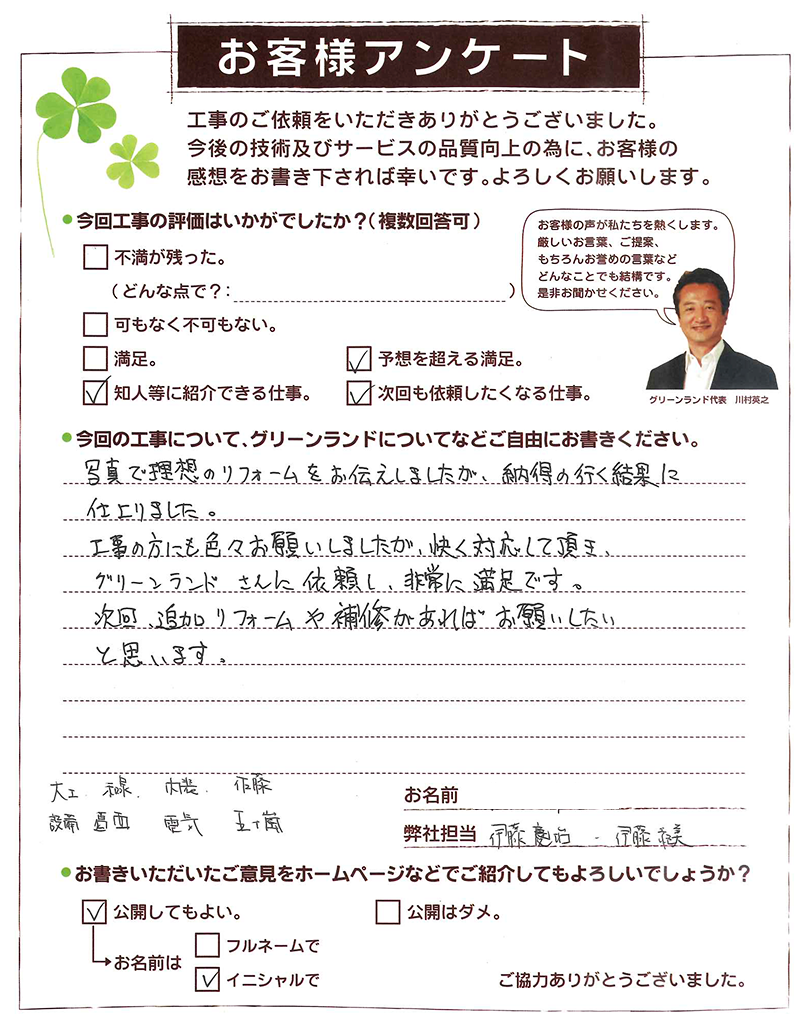 お客様アンケート
工事のご依頼をいただきありがとうございました。
今後の技術及びサービスの品質向上の為に、お客様の
感想をお書き下されば幸いです。よろしくお願いします。
●今回工事の評価はいかがでしたか？（複数回答可）
不満が残った。
（どんな点で？：　）
可もなく不可もない。
満足。
予想を超える満足。
知人等に紹介できる仕事。
次回も依頼したくなる仕事。
お客様の声が私たちを熱くします。
厳しいお言葉、ご提案、
もちろんお誉めの言葉など
どんなことでも結構です。
是非お聞かせください。
グリーンランド代表　川村英之
●今回の工事について、グリーンランドについてなどご自由にお書きください。
写真で理想のリフォームをお伝えしましたが、納得の行く結果に
仕上りました。
工事の方にも色々お願いしましたが、快く対応して頂き、
グリーンランドさんに依頼し、非常に満足です。
次回、追加リフォームや補修があればお願いしたい
と思います。
大工 内装 佐藤
設備 葛西 電気 五十嵐
お名前
弊社担当 伊藤 伊藤
●お書きいただいたご意見をホームページなどでご紹介してもよろしいでしょうか？
公開してもよい。
公開はダメ。
お名前は
フルネームで
イニシャルで
ご協力ありがとうございました。